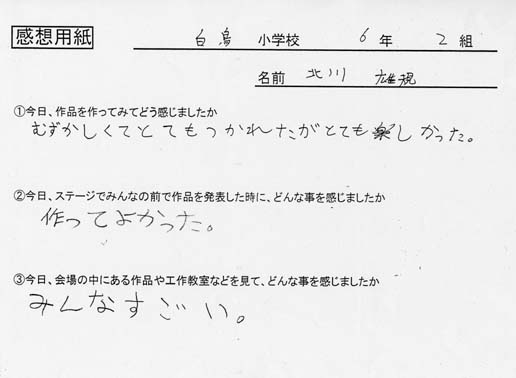 感想用紙
白鳥 小学校 6年 2組
名前 北川 雄視
①今日、作品を作ってみてどう感じましたか
むずかしくてとてもつかれたがとても楽しかった。
②今日、ステージでみんなの前で作品を発表した時に、どんな事を感じましたか
作ってよかった。
③今日、会場の中にある作品や工作教室などを見て、どんな事を感じましたか
みんなすごい。